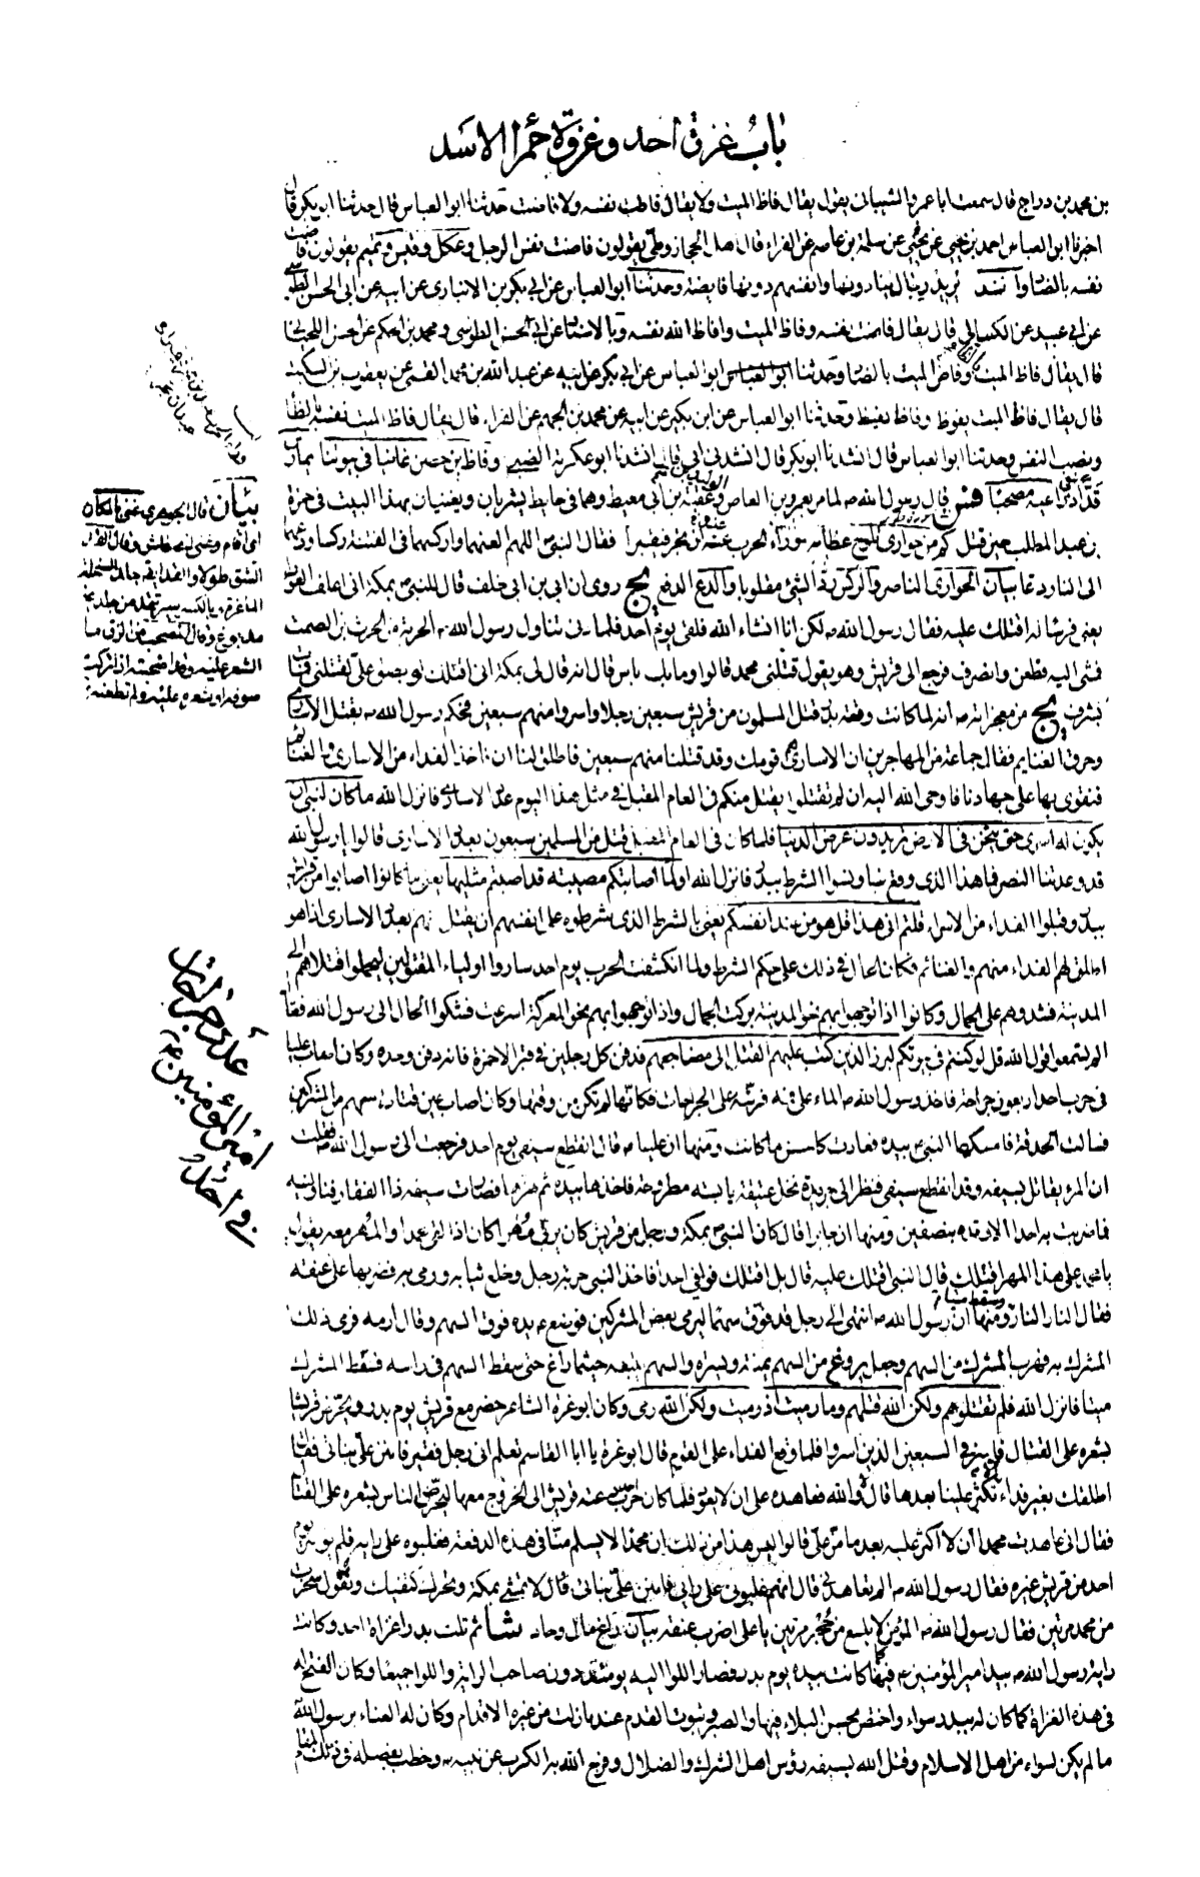 باب غزوة احد وغزوة حمراء الاسد
بن محمد بن دراج قال سمعت ابا عمرو الشيبانى يقول يقال فاظ الميت ولا يقال فاظت نفسه ولا فاضت حدثنا ابو العباس قال حدثنا ابو بكر قال
اخبرنا ابو العباس احمد بن يحيى عن سلمة بن عاصم عن الفراء قال اهل الحجاز وطى يقولون فاضت نفس الرجل وعكل وقيس وتميم يقولون فاضت
نفسه بالضاد وانشد يريد رجال ينادونها وانفسهم دونها فايضة وحدثنا ابو العباس عن ابى بكر بن الانبارى عن ابيه عن ابى الحسن الطوسى
عن ابى عبيد عن الكسائى قال يقال فاضت نفسه وفاظ الميت وافاظ الله نفسه وبالاسناد عن ابى الحسن الطوسى ومحمد بن الحكم عن الحسن اللحيانى
قال يقال فاظ الميت وفاض الميت بالضاد وحدثنا ابو العباس عن ابى بكر عن ابيه عن عبد الله بن محمد عن يعقوب بن السكيت
قال يقال فاظ الميت يفوظ وفاظ يفيظ وحدثنا ابو العباس عن ابى بكر عن ابيه عن محمد بن الجهم عن الفراء قال يقال فاظ الميت نفسه بالظاء
وينصب النفس وحدثنا ابو العباس قال انشدنا ابو بكر قال انشدنى ابى قال انشدنا ابو عكرمة الضبى وفاظ بن حصن غانيا فى بيوتنا يمارس
قدا فى ذراعيه مصحبا فس قال رسول الله ص لما مر بعمرو بن العاص والوليد بن عقبة بن ابى معيط وهما فى حايط يشربان ويغنيان بهذا البيت فى حمزة
بن عبد المطلب حين قتل كم من حوارى تلوح عظامه وراء الحرب عنه ان يجر فيقبرا فقال النبى ص اللهم العنهما واركسهما فى الفتنة ركسا ودعهما
الى النار دعا بيان الحوارى الناصر والركس رد الشئ مقلوبا والدع الدفع يج روى ان ابى بن خلف قال للنبى ص بمكة انى اعلف العوراء
يعنى فرسا له اقتلك عليه فقال رسول الله ص لكن انا انشاء الله فلقى يوم احد فلما دنى تناول رسول الله ص الحربة من الحرث بن الصمت
فمشى اليه فطعن وانصرف فرجع الى قريش وهو يقول قتلنى محمد قالوا وما بك باس قال انه قال لى بمكة انى اقتلك لو بصق على لقتلنى فمات
بشرف يج من معجزاته ص انه لما كانت وقعة بدر قتل المسلمون من قريش سبعين رجلا واسروا منهم سبعين فحكم رسول الله ص بقتل الاسارى
وحرق الغنايم فقال جماعة من المهاجرين ان الاسارى هم قومك وقد قتلنا منهم سبعين فاطلق لنا ان ناخذ الفداء من الاسارى والغنائم
فنقوى بها على جهادنا فاوحى الله اليه ان لم تقتلوا يقتل منكم فى العام المقبل فى مثل هذا اليوم عدد الاسارى فانزل الله ما كان لنبى ان
يكون له اسرى حتى يثخن فى الارض تريدون عرض الدنيا فلما كان فى العام المقبل قتل من المسلمين سبعون بعدد الاسارى قالوا يا رسول الله
قد وعدتنا النصر فما هذا الذى وقع بنا ونسوا الشرط ببدر فانزل الله اولما اصابتكم مصيبة قد اصبتم مثليها يعنى ما كانوا اصابوا من قريش
ببدر وقبلوا الفداء من الاسراء قلتم انى هذا قل هو من عند انفسكم يعنى بالشرط الذى شرطوه على انفسهم ان يقتل منهم بعدد الاسارى اذا هو
اطلق لهم الفداء منهم والغنائم فكان الحال فى ذلك على حكم الشرط ولما انكشفت الحرب يوم احد ساروا اولياء المقتولين ليحملوا قتلاهم الى
المدينة فشدوهم على الجمال وكانوا اذا توجهوا بهم نحو المدينة بركت الجمال واذا توجهوا بهم نحو المعركة اسرعت فشكوا الحال الى رسول الله فقال
الم تسمعوا قول الله قل لو كنتم فى بيوتكم لبرز الذين كتب عليهم القتل الى مضاجعهم فدفن كل رجلين فى قبر الا حمزة فانه دفن وحده وكان اصاب عليا
فى حرب احد اربعون جراحة فاخذ رسول الله ص الماء على فمه فرشه على الجراحات فكانها لم تكن من وقتها وكان اصاب عين قتادة سهم من المشركين
فسالت الحدقة فامسكها النبى ص بيده فعادت كاحسن ما كانت ومنها ان عليا ص قال انقطع سيفى يوم احد فرجعت الى رسول الله ص فقلت
ان المرء يقاتل بسيفه وقد انقطع سيفى فنظر الى جريدة نخل عتيقة يابسة مطروحة فاخذها بيده ثم هزها فصارت سيفه ذا الفقار فناولنيه
فما ضربت به احدا الا وقده بنصفين ومنها ان جابرا قال كان النبى ص بمكة ورجل من قريش كان يربى مهرا كان اذا لقى محمدا والمهر معه يقول
يا محمد على هذا المهر اقتلك قال النبى اقتلك عليه قال بل اقتلك فوافى احدا فاخذ النبى حربة رجل وخلع شبابه ورمى به فضربها على عنقه
فقال النار النار وسقط ميتا ومنها ان رسول الله ص انتهى الى رجل قد فوق سهما ليرمى بعض المشركين فوضع ص يده فوق السهم وقال ارمه فرمى ذلك
المشرك به فهرب المشرك من السهم وجعل يروغ من السهم يمنة ويسرة والسهم يتبعه حيثما راغ حتى سقط السهم فى راسه فسقط المشرك
ميتا فانزل الله فلم تقتلوهم ولكن الله قتلهم وما رميت اذ رميت ولكن الله رمى وكان ابو غرة الشاعر حضر مع قريش يوم بدر ويحرض قريشا
بشعره على القتال فاسر فى السبعين الذين اسروا فلما وقع الفداء على القوم قال ابو غرة يا ابا القاسم تعلم انى رجل فقير فامنن على بناتى فقال
اطلقك بغير فداء الا تكثر علينا بعدها قال لا والله فعاهده على ان لا يعود فلما كان حرب احد دعته قريش الى الخروج معها ليحرض الناس بشعره على القتال
فقال انى عاهدت محمدا ان لا اكثر عليه بعد ما من على قالوا ليس هذا من ذلك ان محمدا لا يسلم منا فى هذه الدفعة فغلبوه على رايه فلم يوسر يوم
احد من قريش غيره فقال رسول الله ص الم تعاهدنى قال انهم غلبونى على رايى فامنن على بناتى قال لا تمشى بمكة وتحرك كتفيك وتقول سخرت
من محمد مرتين فقال رسول الله ص المؤمن لا يلسع من جحر مرتين يا على اضرب عنقه بيان راغ مال وحاد شا ثم تلت بدرا غزاة احد وكانت
راية رسول الله ص بيد امير المؤمنين ع فيها كما كانت بيده يوم بدر فصار اللواء اليه يومئذ دون صاحب الراية واللواء جميعا وكان الفتح له
فى هذه الغزاة كما كان له ببدر سواء واختص بحسن البلاء فيها والصبر وثبوت القدم عندما زلت من غيره الاقدام وكان له العناء برسول الله
ما لم يكن لسواه من اهل الاسلام وقتل الله بسيفه رؤس اهل الشرك والضلال وفرج الله به الكرب عن نبيه ص وخطب بفضله فى ذلك المقام
بيان قال الجوهرى غنى بالمكان
اى اقام وغنى اى عاش وقال القد
الشق طولا والقد ايضا جلد السخلة
الماعزة وبالكسر سير يقد من جلد غير
مدبوغ وقال المصحب من الزق ما
الشعر عليه وقد اصحبته اذا تركت
صوفه او شعره عليه ولم تعطنه
عدد جراحات
امير المؤمنين ع
فى احد